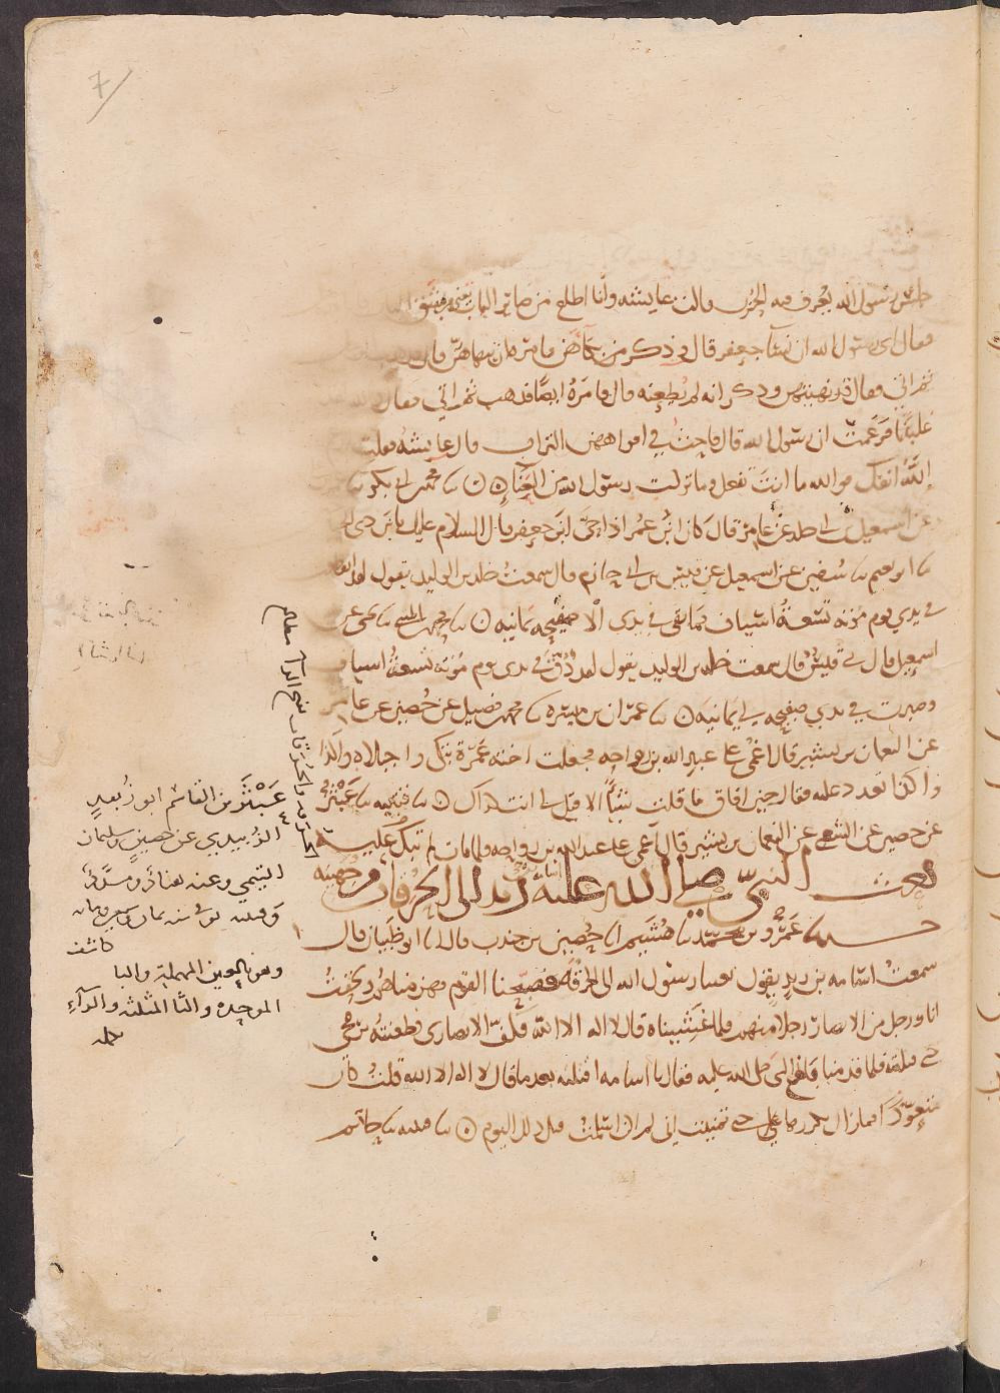 جلس رسول الله يعرف فيه الحزن قالت عايشه وانا اطلع من صاير الباب تعني من شق
فقال اي رسول الله ان نسآ جعفر قال وذكر من بكآهن فامره ان ينهاهن قال
ثم اتى فقال قد نهيتهن وذكر انه لم يطعنه قال فامره ايضا فذهب ثم اتى فقال
غلبننا فزعمت ان رسول الله قال فاحث في افواههن التراب قال عايشه فقلت
الله انفك فوالله ما انت تفعل وما تركت رسول الله من العنا ه ن محمد بن ابي بكر
عن اسمعيل بن ابي خلد عن عامر قال كان ابن عمر اذا حيى ابن جعفر قال السلام عليك يا بن ذي
ابو نعيم سفين عن اسمعيل عن قيس بن ابي حازم قال سمعت خلد بن الوليد يقول لقد
في يدي يوم موته تسعة اسياف فما بقي في يدي الا صفيحه يمانيه ن محمد بن المثنى يحيى عن
اسمعيل قال في قيس قال سمعت خلد بن الوليد يقول لقد دق في يدي يوم موته تسعة اسياف
وصبرت في يدي صفيحه لي يمانيه ن عمران بن ميسره محمد بن فضيل عن حصين عن عامر
عن النعمان بن بشير قال اغمي على عبد الله بن رواحه فجعلت اخته عمرة تبكي واجبلاه واكذا
واكذا تعدد عليه فقال حين افاق ما قلت شيا الا قيل لي انت كذاك ن قتيبه عبثر
عن حصين عن الشعبي عن النعمان بن بشير قال اغمي على عبد الله بن رواحه فلما مات لم تبك عليه
بعث النبي صلى الله عليه اسامة بن زيد الى الحرقات من جهينه
عمرو بن محمد هشيم انا حصين بن جندب قال انا ابو ظبيان قال
سمعت اسامه بن زيد يقول بعثنا رسول الله الى الحرقه فصبحنا القوم فهزمناهم ولحقت
انا ورجل من الانصار رجلا منهم فلما غشيناه قال لا اله الا الله فكف الانصاري فطعنته برمحي
حتى قتلته فلما قدمنا بلغ النبي صلى الله عليه فقال يا اسامه اقتلته بعد ما قال لا اله الا الله قلت كان
متعوذا فما زال يكررها علي حتى تمنيت اني لم اكن اسلمت قبل ذلك اليوم ن قتيبه حاتم
عبثر بن القاسم ابو زبيد
الزبيدي عن حصين وسليمان
التيمي وعنه هناد ومسدد
كاشف
وهو بالعين المهملة والبا
الموحده والثا المثلثه والرآء